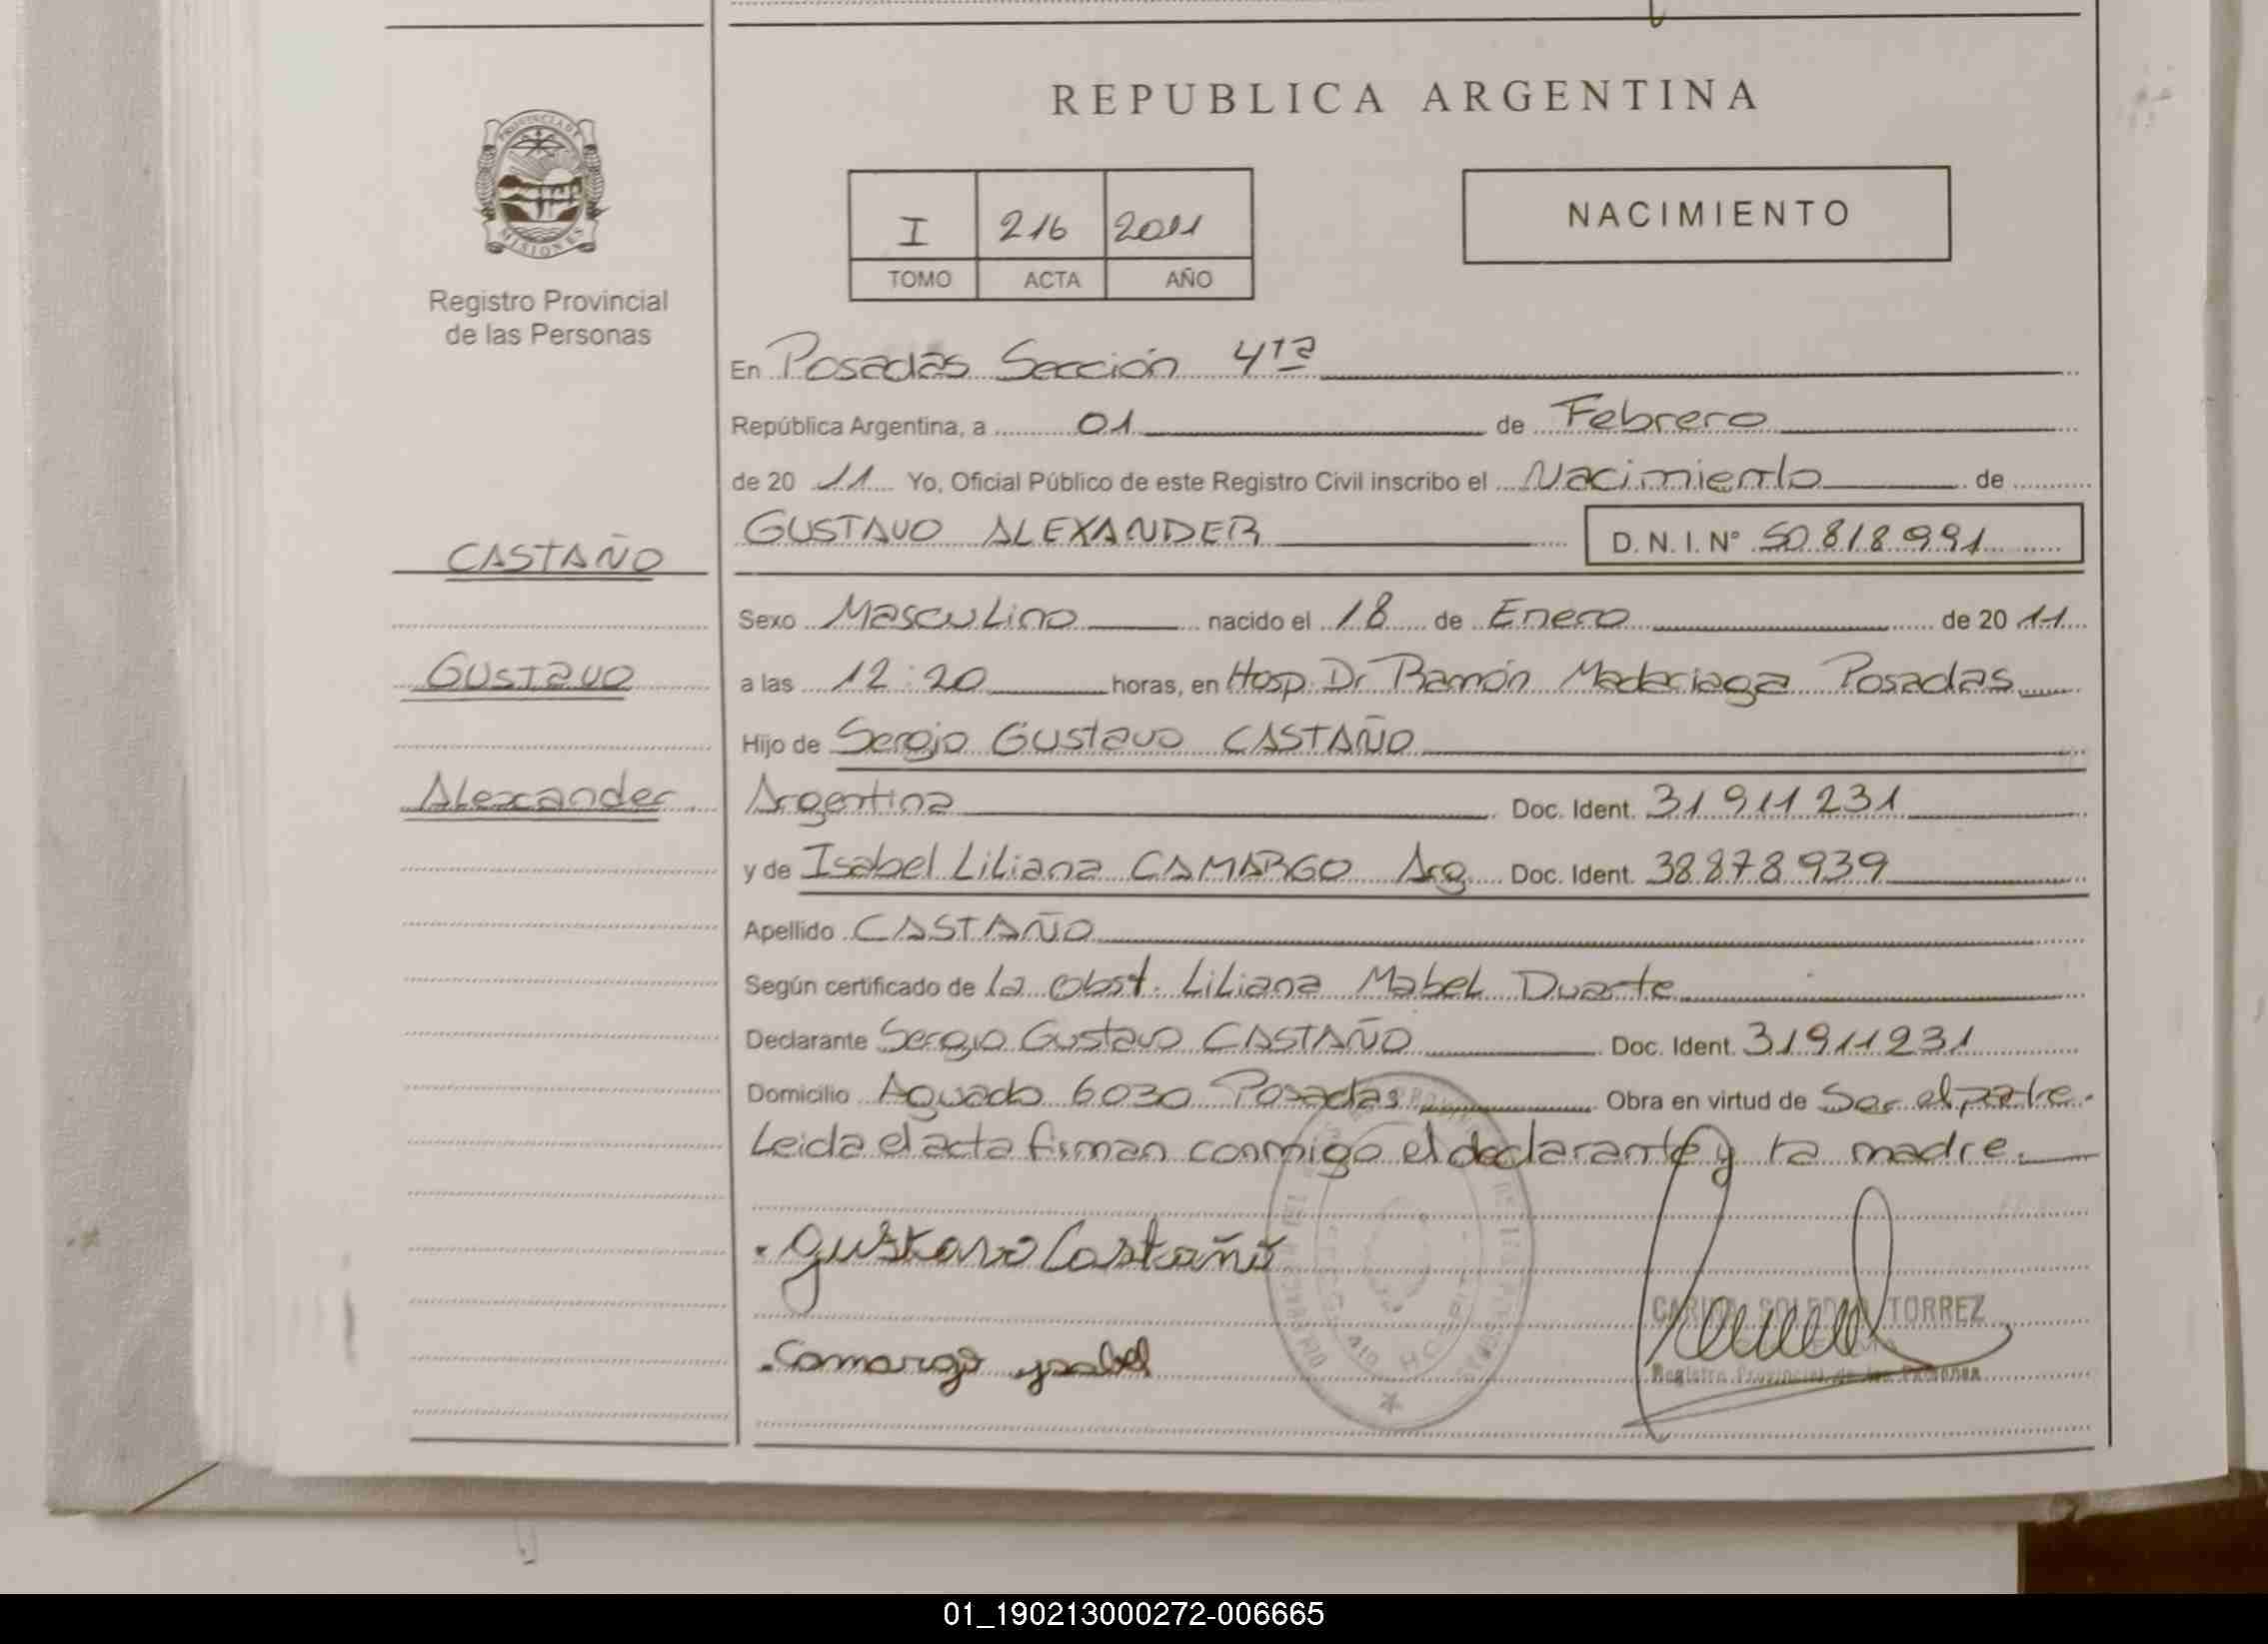 REPUBLICA ARGENTINA
PROVINCIA DE MISIONES
Registro Provincial
de las Personas
I 216 2011
TOMO ACTA AÑO
NACIMIENTO
En Posadas Sección 4ta
República Argentina, a 01 de Febrero
de 20 11 Yo, Oficial Público de este Registro Civil inscribo el Nacimiento de
CASTAÑO
GUSTAVO ALEXANDER D. N. I. Nº 50818991
Sexo Masculino nacido el 18 de Enero de 20 11
Gustavo
a las 12:20 horas, en Hosp. Dr Ramón Madariaga Posadas
Hijo de Sergio Gustavo CASTAÑO
Alexander
Argentina Doc. Ident. 31911231
y de Isabel Liliana CAMARGO Arg. Doc. Ident. 38878939
Apellido CASTAÑO
Según certificado de la Obst. Liliana Mabel Duarte
Declarante Sergio Gustavo CASTAÑO Doc. Ident. 31911231
Domicilio Aguado 6030 Posadas Obra en virtud de Ser el padre.
Leida el acta firman conmigo el declarante y la madre.
Gustavo Castaño
Camargo ysabel
SOLEDAD TORREZ
Registro Provincial de las Personas
01_190213000272-006665